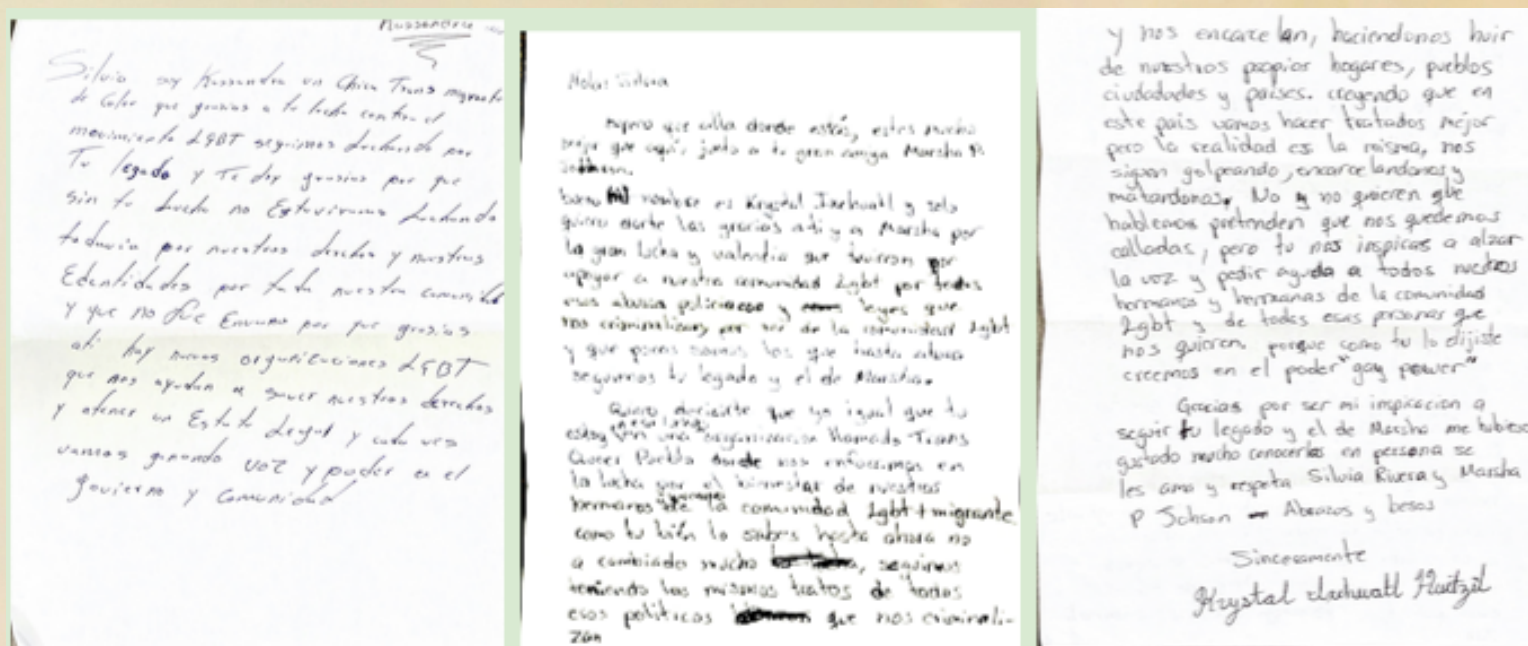 Kussandra
Silvia soy Kussandra un Chica Trans migrante
de Color que gracias a tu lucha contra el
movimiento LGBT seguimos luchando por
Tu legado y Te doy gracias por que
sin tu lucha no Estuvieramos luchando
todavia por nuestros derechos y nuestras
Edentidades por toda nuestra comunidad
y que no fue Envano por que gracias
ati hay nuevas organizaciones LGBT
que nos ayudan a saver nuestros derechos
y atener un Estato Legal y cada ves
vamos ganando voz y poder en el
govierno y Comunidad
Hola:
espero que alla donde estás, estes mucho
mejor que aqui, junto a tu gran amiga Marsha P.
bueno mi nombre es Krystal Ixchuatl y solo
quiero darte las gracias a ti y a Marsha por
la gran lucha y valentia que tuvieron por
apoyar a nuestra comunidad Lgbt por todos
esos abusos policiacos y leyes que
nos criminalizan por ser de la comunidad Lgbt
y que pues somos los que hasta ahora
seguimos tu legado y el de Marsha.
Quiero decirte que yo igual que tu
estoy en una organización llamada Trans
Queer Pueblo donde nos enfocamos en
la lucha por el bienestar de nuestros
hermanos de la comunidad Lgbt + migrante
como tu bién lo sabes hasta ahora no
a cambiado mucho, seguimos
teniendo los mismos tratos de todos
esos politicos que nos criminali-
zan
y nos encarcelan, haciendonos huir
de nuestros propios hogares, pueblos
ciudadades y paises. creyendo que en
este pais vamos hacer tratados mejor
pero la realidad es la misma, nos
siguen golpeando, encarcelandonos y
matandonos. No y no quieren que
hablemos pretenden que nos quedemos
calladas, pero tu nos inspiras a alzar
la voz y pedir ayuda a todos nuestros
hermanos y hermanas de la comunidad
Lgbt y de todas esas personas que
nos quieren porque como tu lo dijiste
creemos en el poder "gay power"
Gracias por ser mi inspiracion a
seguir tu legado y el de Marsha me hubiese
gustado mucho conocerlas en persona se
les ama y respeta Silvia Rivera y Marsha
P Johson - Abrazos y besos
Sinceramente
Krystal Ixchuatl